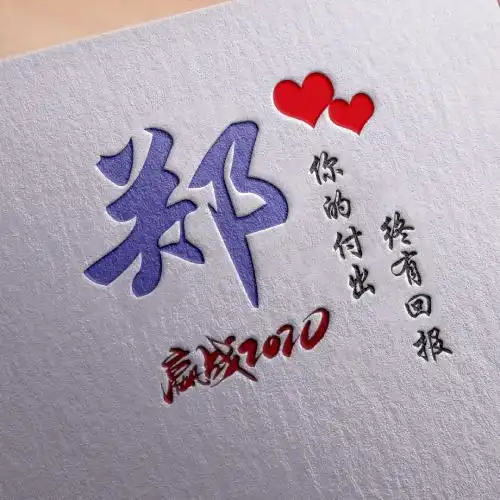 郑
你的付出
终有回报
赢战2020